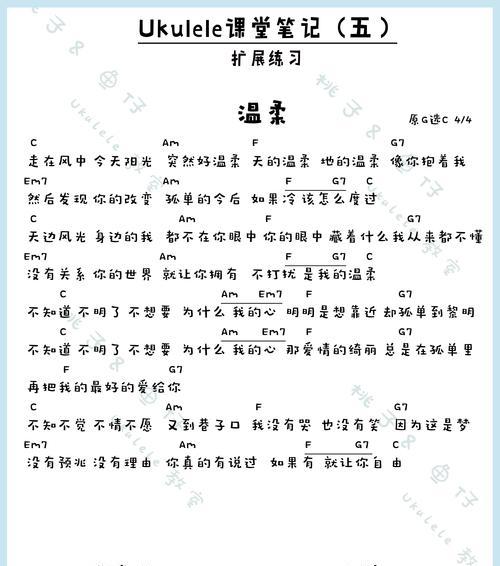 Ukulele课堂笔记（五）
扩展练习
温柔
原G选C 4/4
C Am F G7
走在风中 今天阳光 突然好温柔 天的温柔 地的温柔 像你抱着我
Em7 Am F G7 C
然后发现 你的改变 孤单的今后 如果 冷 该怎么度过
C Am F G7
天边风光 身边的我 都不在你眼中 你的眼中 藏着什么 我从来都不懂
Em7 Am F G7 C
没有关系 你的世界 就让你拥有 不打扰 是我的温柔
C Am Em7 F G7
不知道 不明了 不想要 为什么 我的心 明明是想靠近 却孤单到黎明
C Am Em7 F G7
不知道 不明了 不想要 为什么 我的心 那爱情的绮丽 总是在孤单里
F G7
再把我的最好的爱给你
C Am F G7
不知不觉 不情不愿 又到巷子口 我没有哭 也没有笑 因为这是梦
Em7 Am F G7 C
没有预兆 没有理由 你真的有说过 如果有 就让你自由
桃子&鱼仔
Ukulele教室
桃子&鱼仔
Ukulele教室
桃子&鱼仔
Ukulele教室
桃子&鱼仔
Ukulele教室